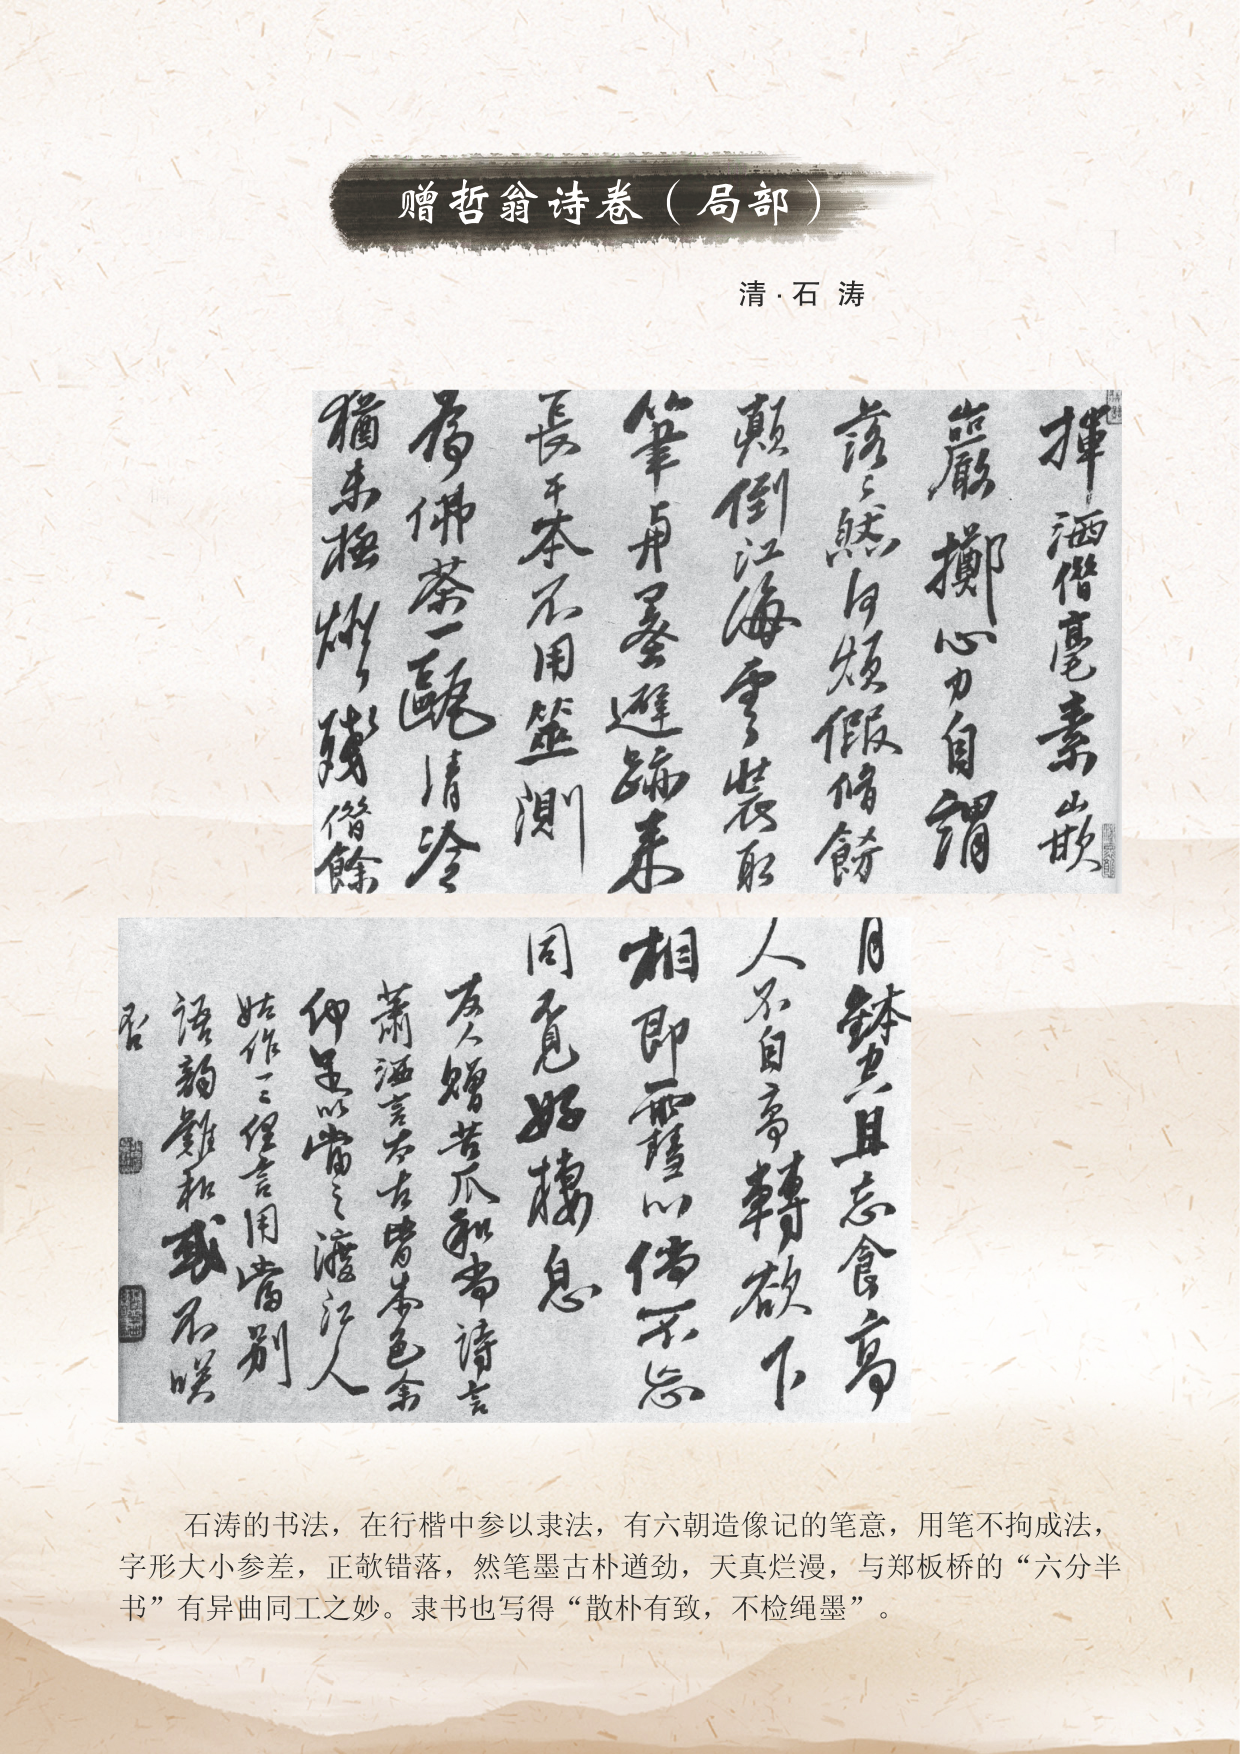 赠哲翁诗卷（局部）
清·石 涛
揮洒借毫素嵌
巖擲心力自謂
落〻然何煩假脩飾
顛倒江海雲裝取
筆與墨避跡来
長干本不用筮測
為佛茶一甌清冷
猶未極燃〻殘借餘
月鉢空且忘食高
人不自高轉欲下
相即靈以倘不忘
同覓好棲息
友人贈苦瓜和尚詩言
蕭洒言太古皆本色余
仰足以當之渡江人
姑作一二俚言用當別
語韵難和或不咲
否
石涛的书法，在行楷中参以隶法，有六朝造像记的笔意，用笔不拘成法，
字形大小参差，正欹错落，然笔墨古朴遒劲，天真烂漫，与郑板桥的“六分半
书”有异曲同工之妙。隶书也写得“散朴有致，不检绳墨”。